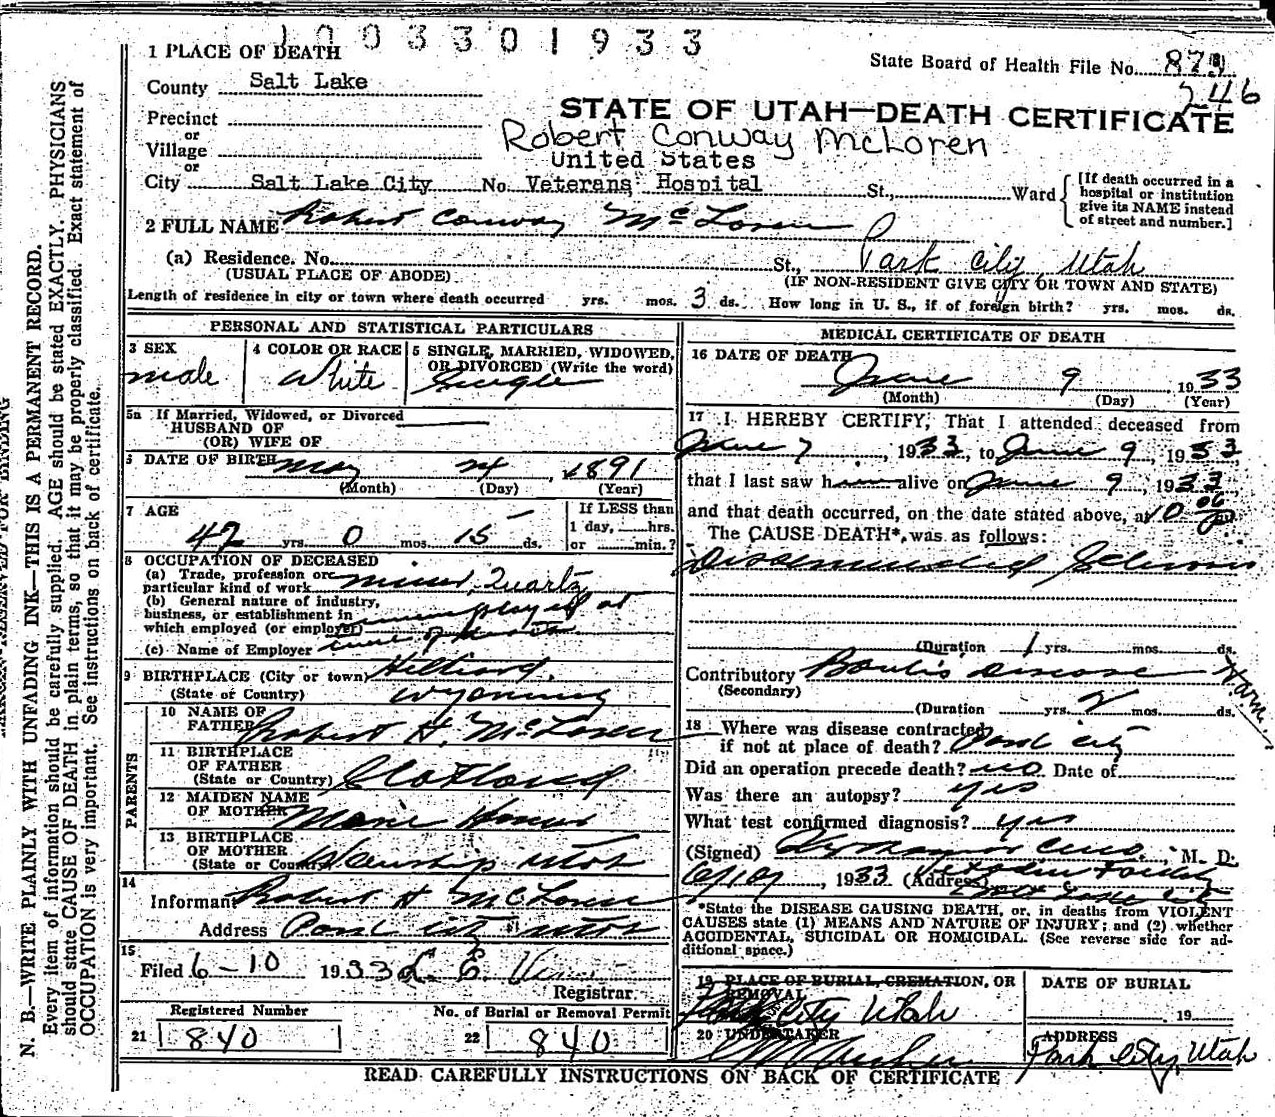 1003301933
1 PLACE OF DEATH
State Board of Health File No. 870
246
County Salt Lake
STATE OF UTAH—DEATH CERTIFICATE
Precinct
Robert Conway McLoren
or
Village
United States
or
City Salt Lake City No. Veterans' Hospital St., Ward
[If death occurred in a hospital or institution give its NAME instead of street and number.]
2 FULL NAME Robert Conway McLoren
(a) Residence. No. St., Park City, Utah
(USUAL PLACE OF ABODE) (IF NON-RESIDENT GIVE CITY OR TOWN AND STATE)
Length of residence in city or town where death occurred yrs. mos. 3 ds. How long in U. S., if of foreign birth? yrs. mos. ds.
PERSONAL AND STATISTICAL PARTICULARS
3 SEX
male
4 COLOR OR RACE
White
5 SINGLE, MARRIED, WIDOWED, OR DIVORCED (Write the word)
Single
5a If Married, Widowed, or Divorced
HUSBAND OF
(OR) WIFE OF
6 DATE OF BIRTH May 24, 1891
(Month) (Day) (Year)
7 AGE
42 yrs. 0 mos. 15 ds.
If LESS than
1 day, hrs.
or min.?
8 OCCUPATION OF DECEASED
(a) Trade, profession or
particular kind of work miner, Quartz
(b) General nature of industry,
business, or establishment in
which employed (or employer) unemployed at
(c) Name of Employer time of
9 BIRTHPLACE (City or town) Hilliard,
(State or Country) Wyoming
PARENTS
10 NAME OF
FATHER Robert H. McLoren
11 BIRTHPLACE
OF FATHER
(State or Country) Scotland
12 MAIDEN NAME
OF MOTHER Marie
13 BIRTHPLACE
OF MOTHER
(State or Country) Wanship Utah
14
Informant Robert H McLoren
Address Park City Utah
15
Filed 6-10 1933 L. E.
Registrar.
Registered Number
21 840
No. of Burial or Removal Permit
22 840
MEDICAL CERTIFICATE OF DEATH
16 DATE OF DEATH
June 9 1933
(Month) (Day) (Year)
17 I HEREBY CERTIFY, That I attended deceased from
June 7, 1933, to June 9, 1933
that I last saw him alive on June 9, 1933
and that death occurred, on the date stated above, at 10
The CAUSE DEATH*, was as follows:
Disseminated Sclerosis
(Duration 1 yrs. mos. ds.
Contributory Banti's disease
(Secondary)
(Duration yrs. 2 mos. ds.
18 Where was disease contracted
if not at place of death? Park City
Did an operation precede death? no Date of
Was there an autopsy? yes
What test confirmed diagnosis? yes
(Signed) , M. D.
6/10, 1933 (Address) Salt Lake City
*State the DISEASE CAUSING DEATH, or, in deaths from VIOLENT
CAUSES state (1) MEANS AND NATURE OF INJURY; and (2) whether
ACCIDENTAL, SUICIDAL OR HOMICIDAL. (See reverse side for additional space.)
19 PLACE OF BURIAL, CREMATION, OR
REMOVAL
Park City Utah
DATE OF BURIAL
19
20 UNDERTAKER
ADDRESS
Park City, Utah
READ CAREFULLY INSTRUCTIONS ON BACK OF CERTIFICATE
N. B.—WRITE PLAINLY WITH UNFADING INK—THIS IS A PERMANENT RECORD.
Every item of information should be carefully supplied. AGE should be stated EXACTLY. PHYSICIANS
should state CAUSE OF DEATH in plain terms, so that it may be properly classified. Exact statement of
OCCUPATION is very important. See instructions on back of certificate.